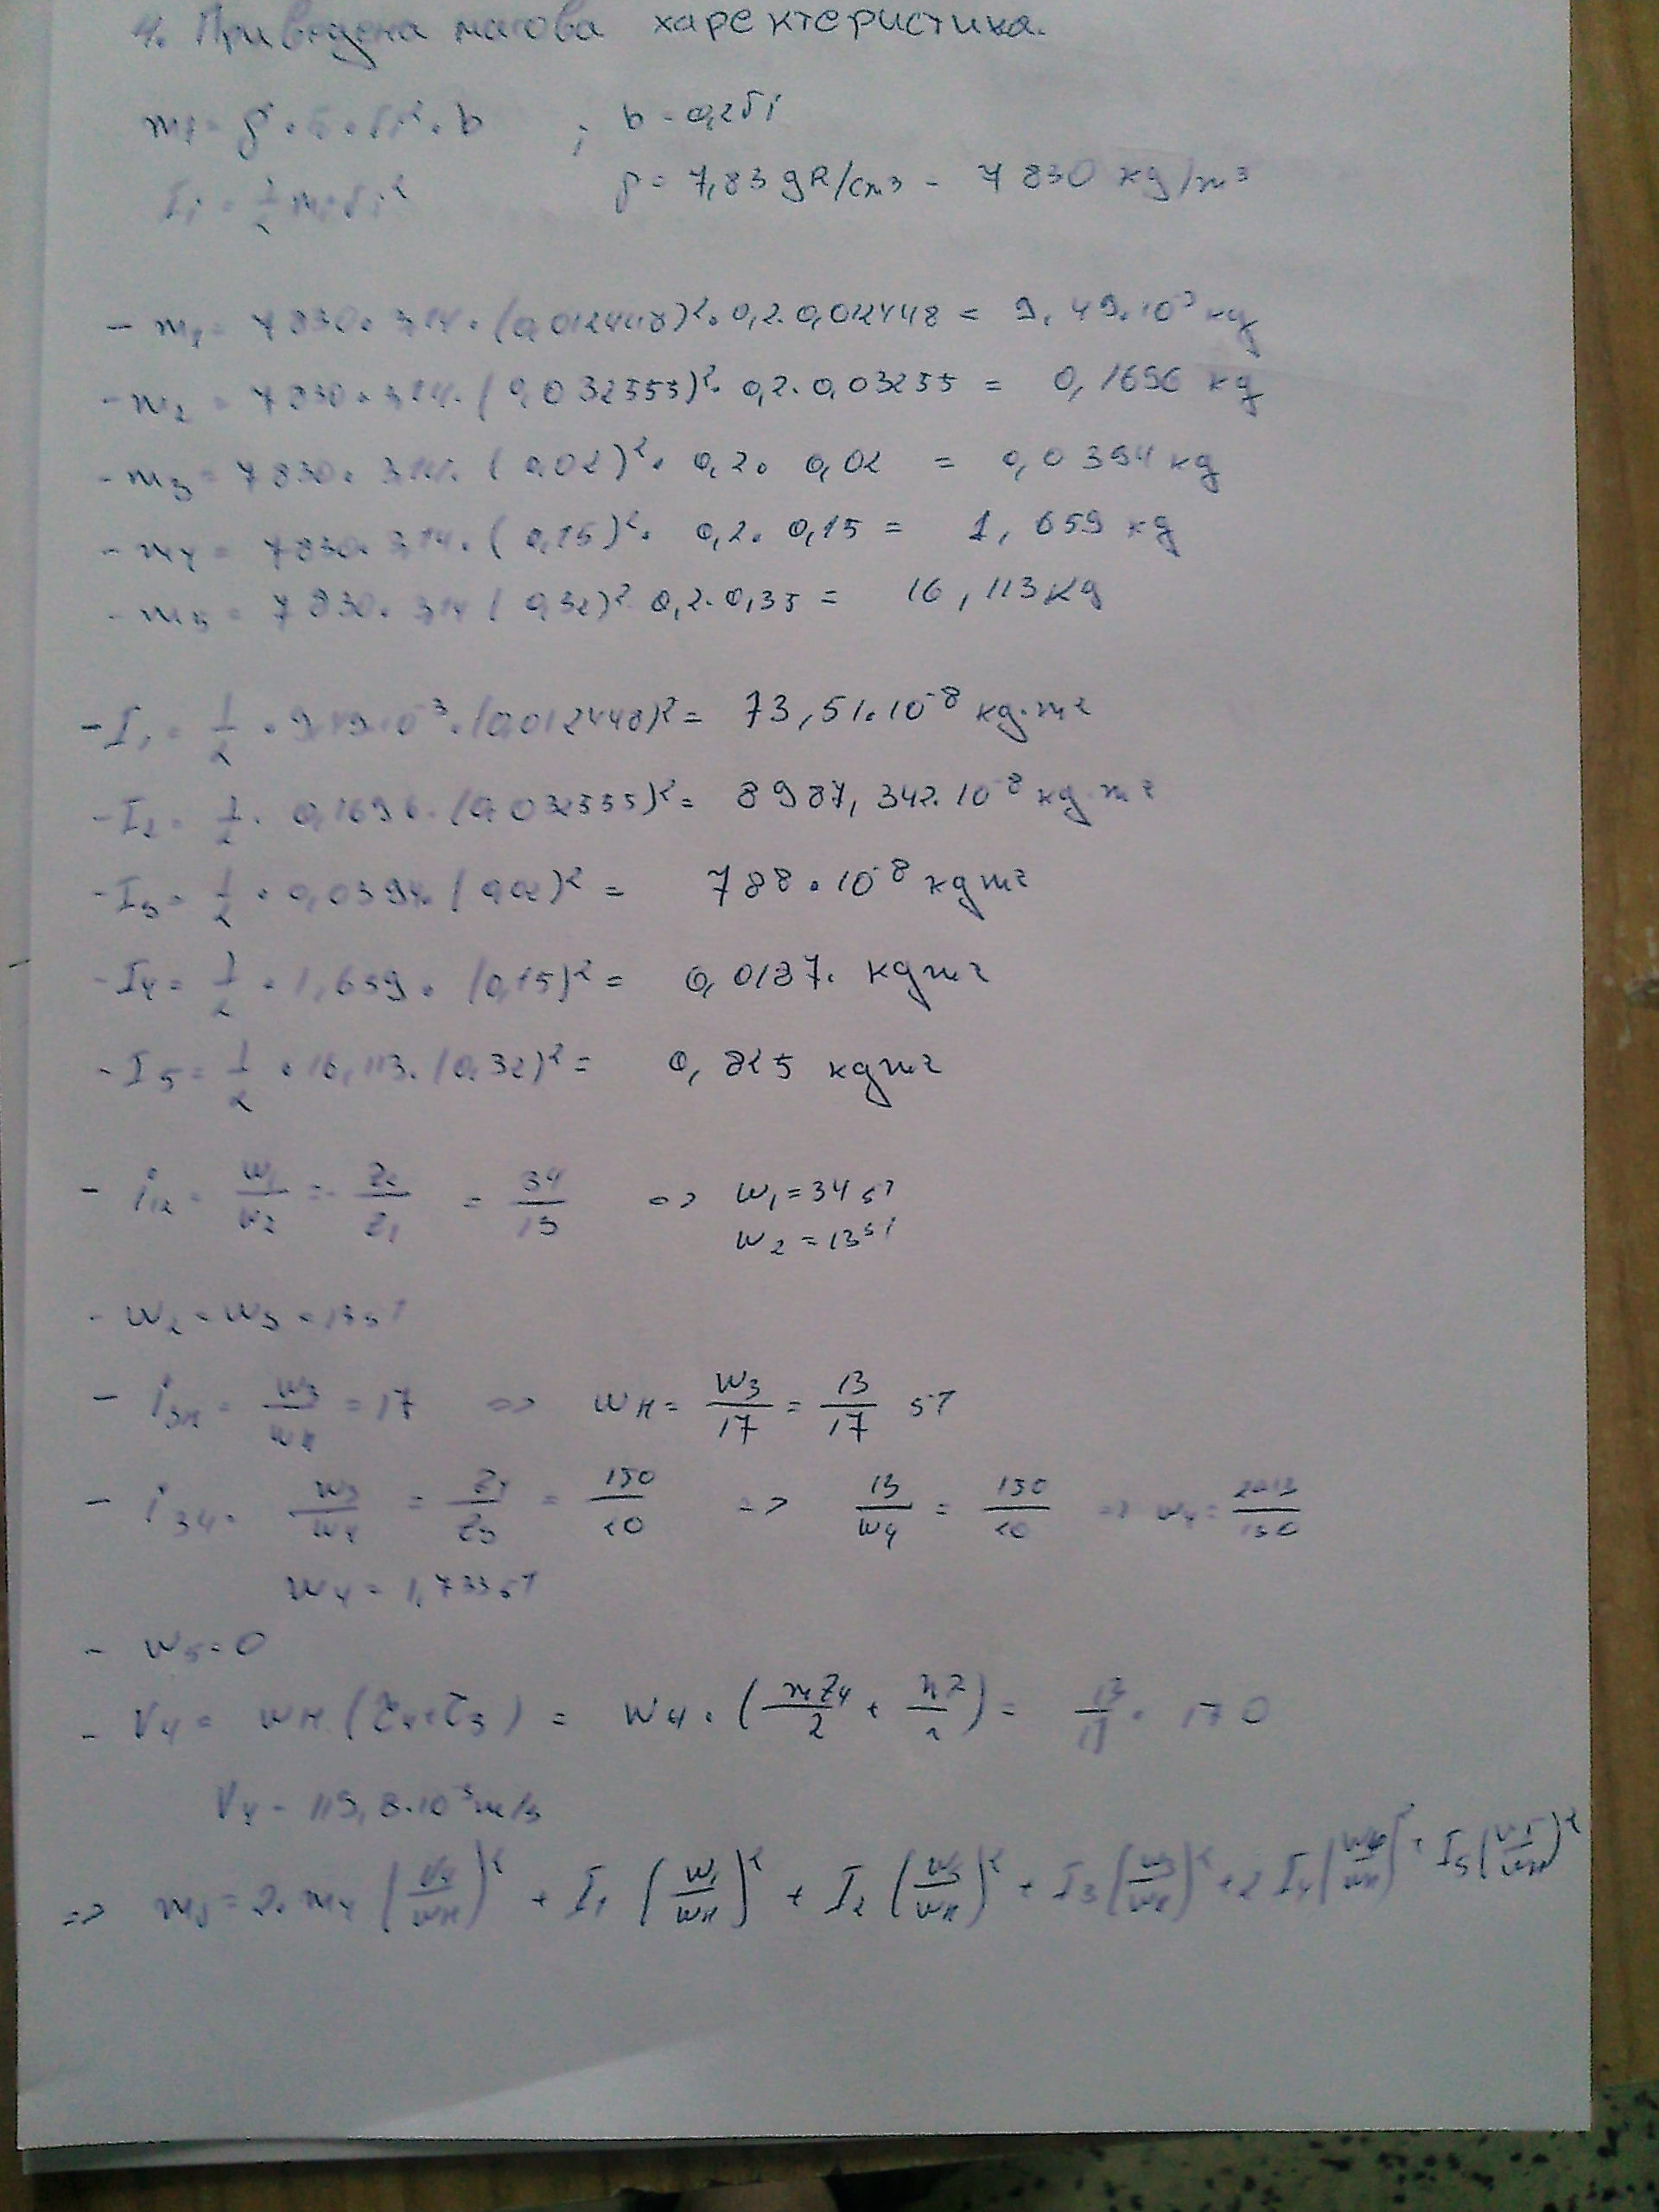 4. Приведена масова характеристика.
mi = ρ . π . ri² . b ; b = 0,2 ri
ρ = 7,83 gR/cm3 - 7 830 kg/m3
Ii = 1/2 mi ri²
- m1 = 7830 . 3,14 . (0,012448)² . 0,2 . 0,012448 = 9,49.10-3 kg
- m2 = 7830 . 3,14 . (0,032555)² . 0,2 . 0,03255 = 0,1696 kg
- m3 = 7830 . 3,14 . (0,02)² . 0,2 . 0,02 = 0,0394 kg
- m4 = 7830 . 3,14 . (0,15)² . 0,2 . 0,15 = 1,659 kg
- m5 = 7830 . 3,14 (0,32)² 0,2 . 0,35 = 16,113 kg
- I1 = 1/2 . 9,49.10-3 . (0,012448)² = 73,51.10-8 kg.m2
- I2 = 1/2 . 0,1696 . (0,032555)² = 8987,342.10-8 kg.m2
- I3 = 1/2 . 0,0394 . (0,02)² = 788.10-8 kgm2
- I4 = 1/2 . 1,659 . (0,15)² = 0,0187. kgm2
- I5 = 1/2 . 16,113 . (0,32)² = 0,825 kgm2
- i12 = w1/w2 = - z2/z1 = 34/13 => w1 = 34 s-1
w2 = 13 s-1
- w2 = w3 = 13 s-1
- i3H = w3/wH = 17 => wH = w3/17 = 13/17 s-1
- i34 = w3/w4 = z4/z3 = 150/20 => 13/w4 = 150/20 => w4 = 20.13/150
w4 = 1,733 s-1
- w5 = 0
- V4 = wH (r4+r3) = wH . (mz4/2 + ) = 13/17 . 170
V4 - 119,8.10-3 m/s
=> = 2. m4 (V4/wH)² + I1 (w1/wH)² + I2 (w3/wH)² + I3 (w3/wH)² + 2 I4 (w4/wH)² + I5 (w5/wH)²